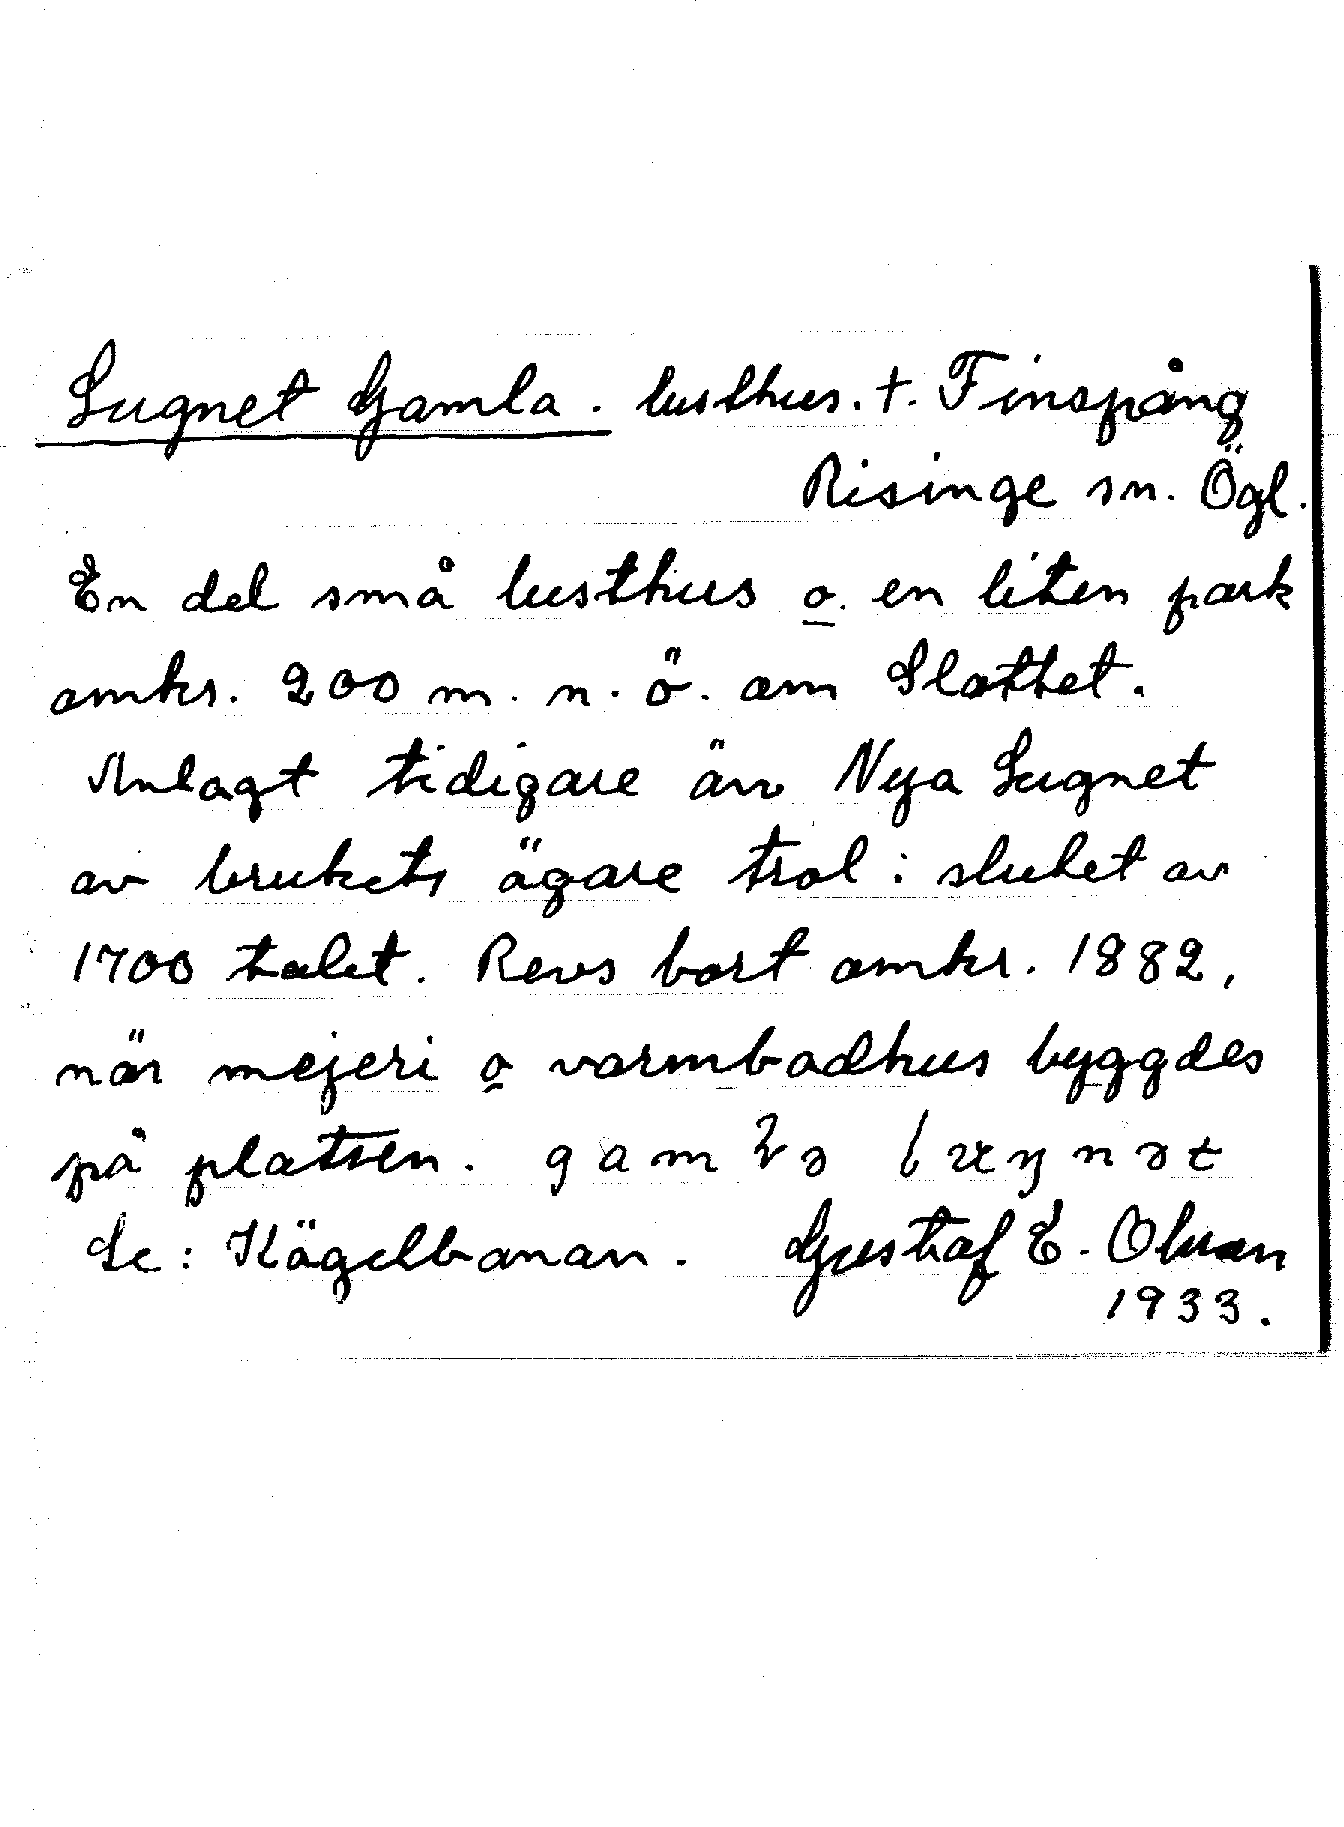 Lugnet Gamla. lusthus. †. Finspång
Risinge sn. Ögl.
En del små lusthus o. en liten park
omkr. 200 m. n. ö. om Slottet.
Anlagt tidigare än Nya Lugnet
av brukets ägare trol: slutet av
1700 talet. Revs bort omkr. 1882,
när mejeri o varmbadhus byggdes
på platsen. gam
Se: Kägelbanan. Gustaf E. Olsson
1933.